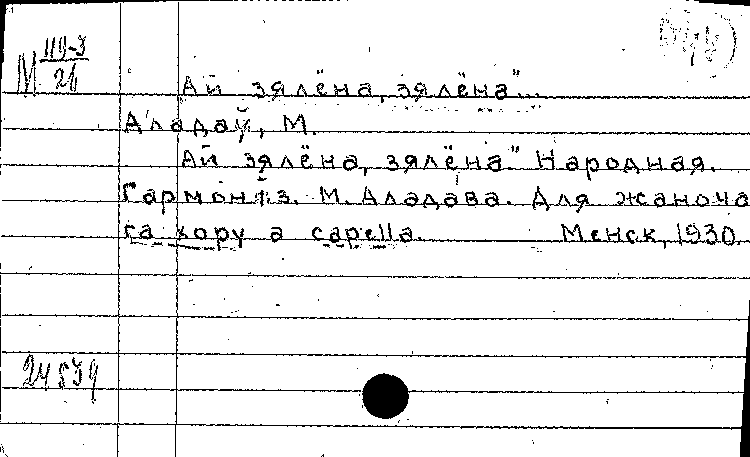 М 119-3
26
Ай зялёна, зялёна"...
Аладаў, М.
Ай зялёна, зялёна." Народная.
Гармоніз. М. Аладава. Для жаноча
га хору a capella. Менск, 1930.
24839